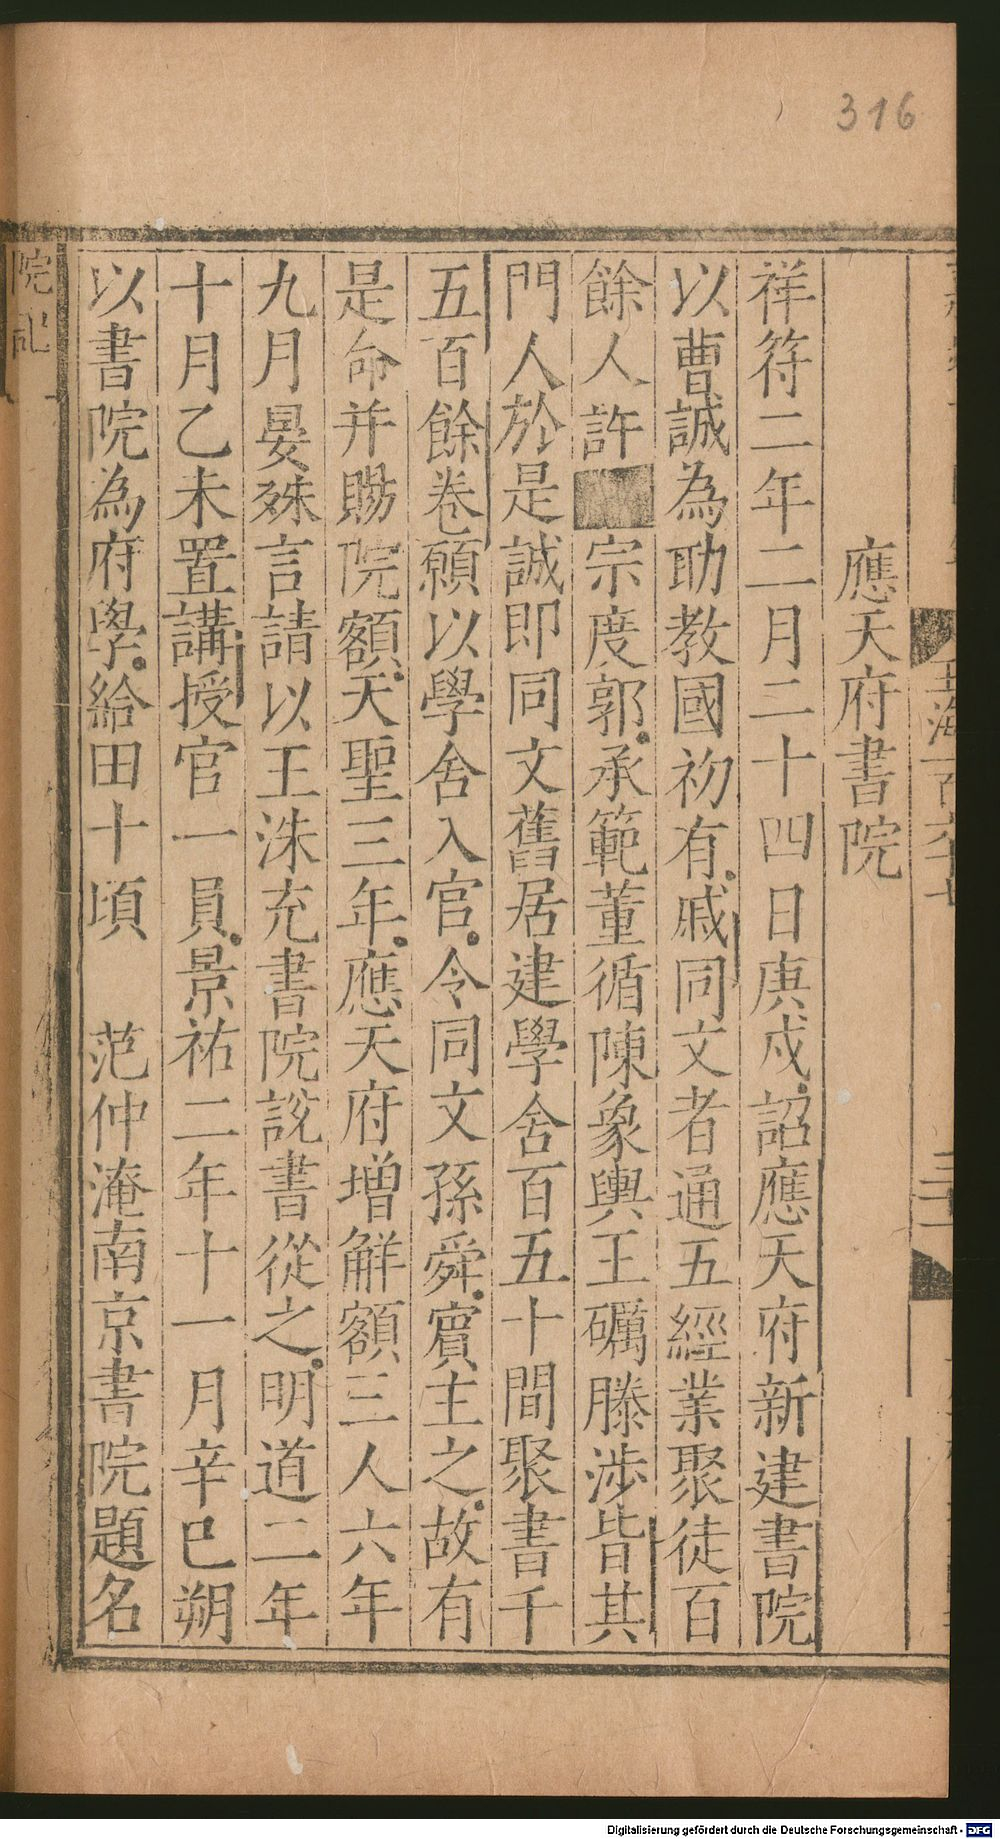 316
應天府書院
祥符二年二月二十四日庚戌詔應天府新建書院
以曹誠為助教國初有戚同文者通五經業聚徒百
餘人許宗度郭承範董循陳象輿王礪滕涉皆其
門人於是誠即同文舊居建學舍百五十間聚書千
五百餘卷願以學舍入官令同文孫舜賓主之故有
是命并賜院額天聖三年應天府增解額三人六年
九月晏殊言請以王洙充書院說書從之明道二年
十月乙未置講授官一員景祐二年十一月辛巳朔
以書院為府學給田十頃　范仲淹南京書院題名
Digitalisierung gefördert durch die Deutsche Forschungsgemeinschaft - DFG